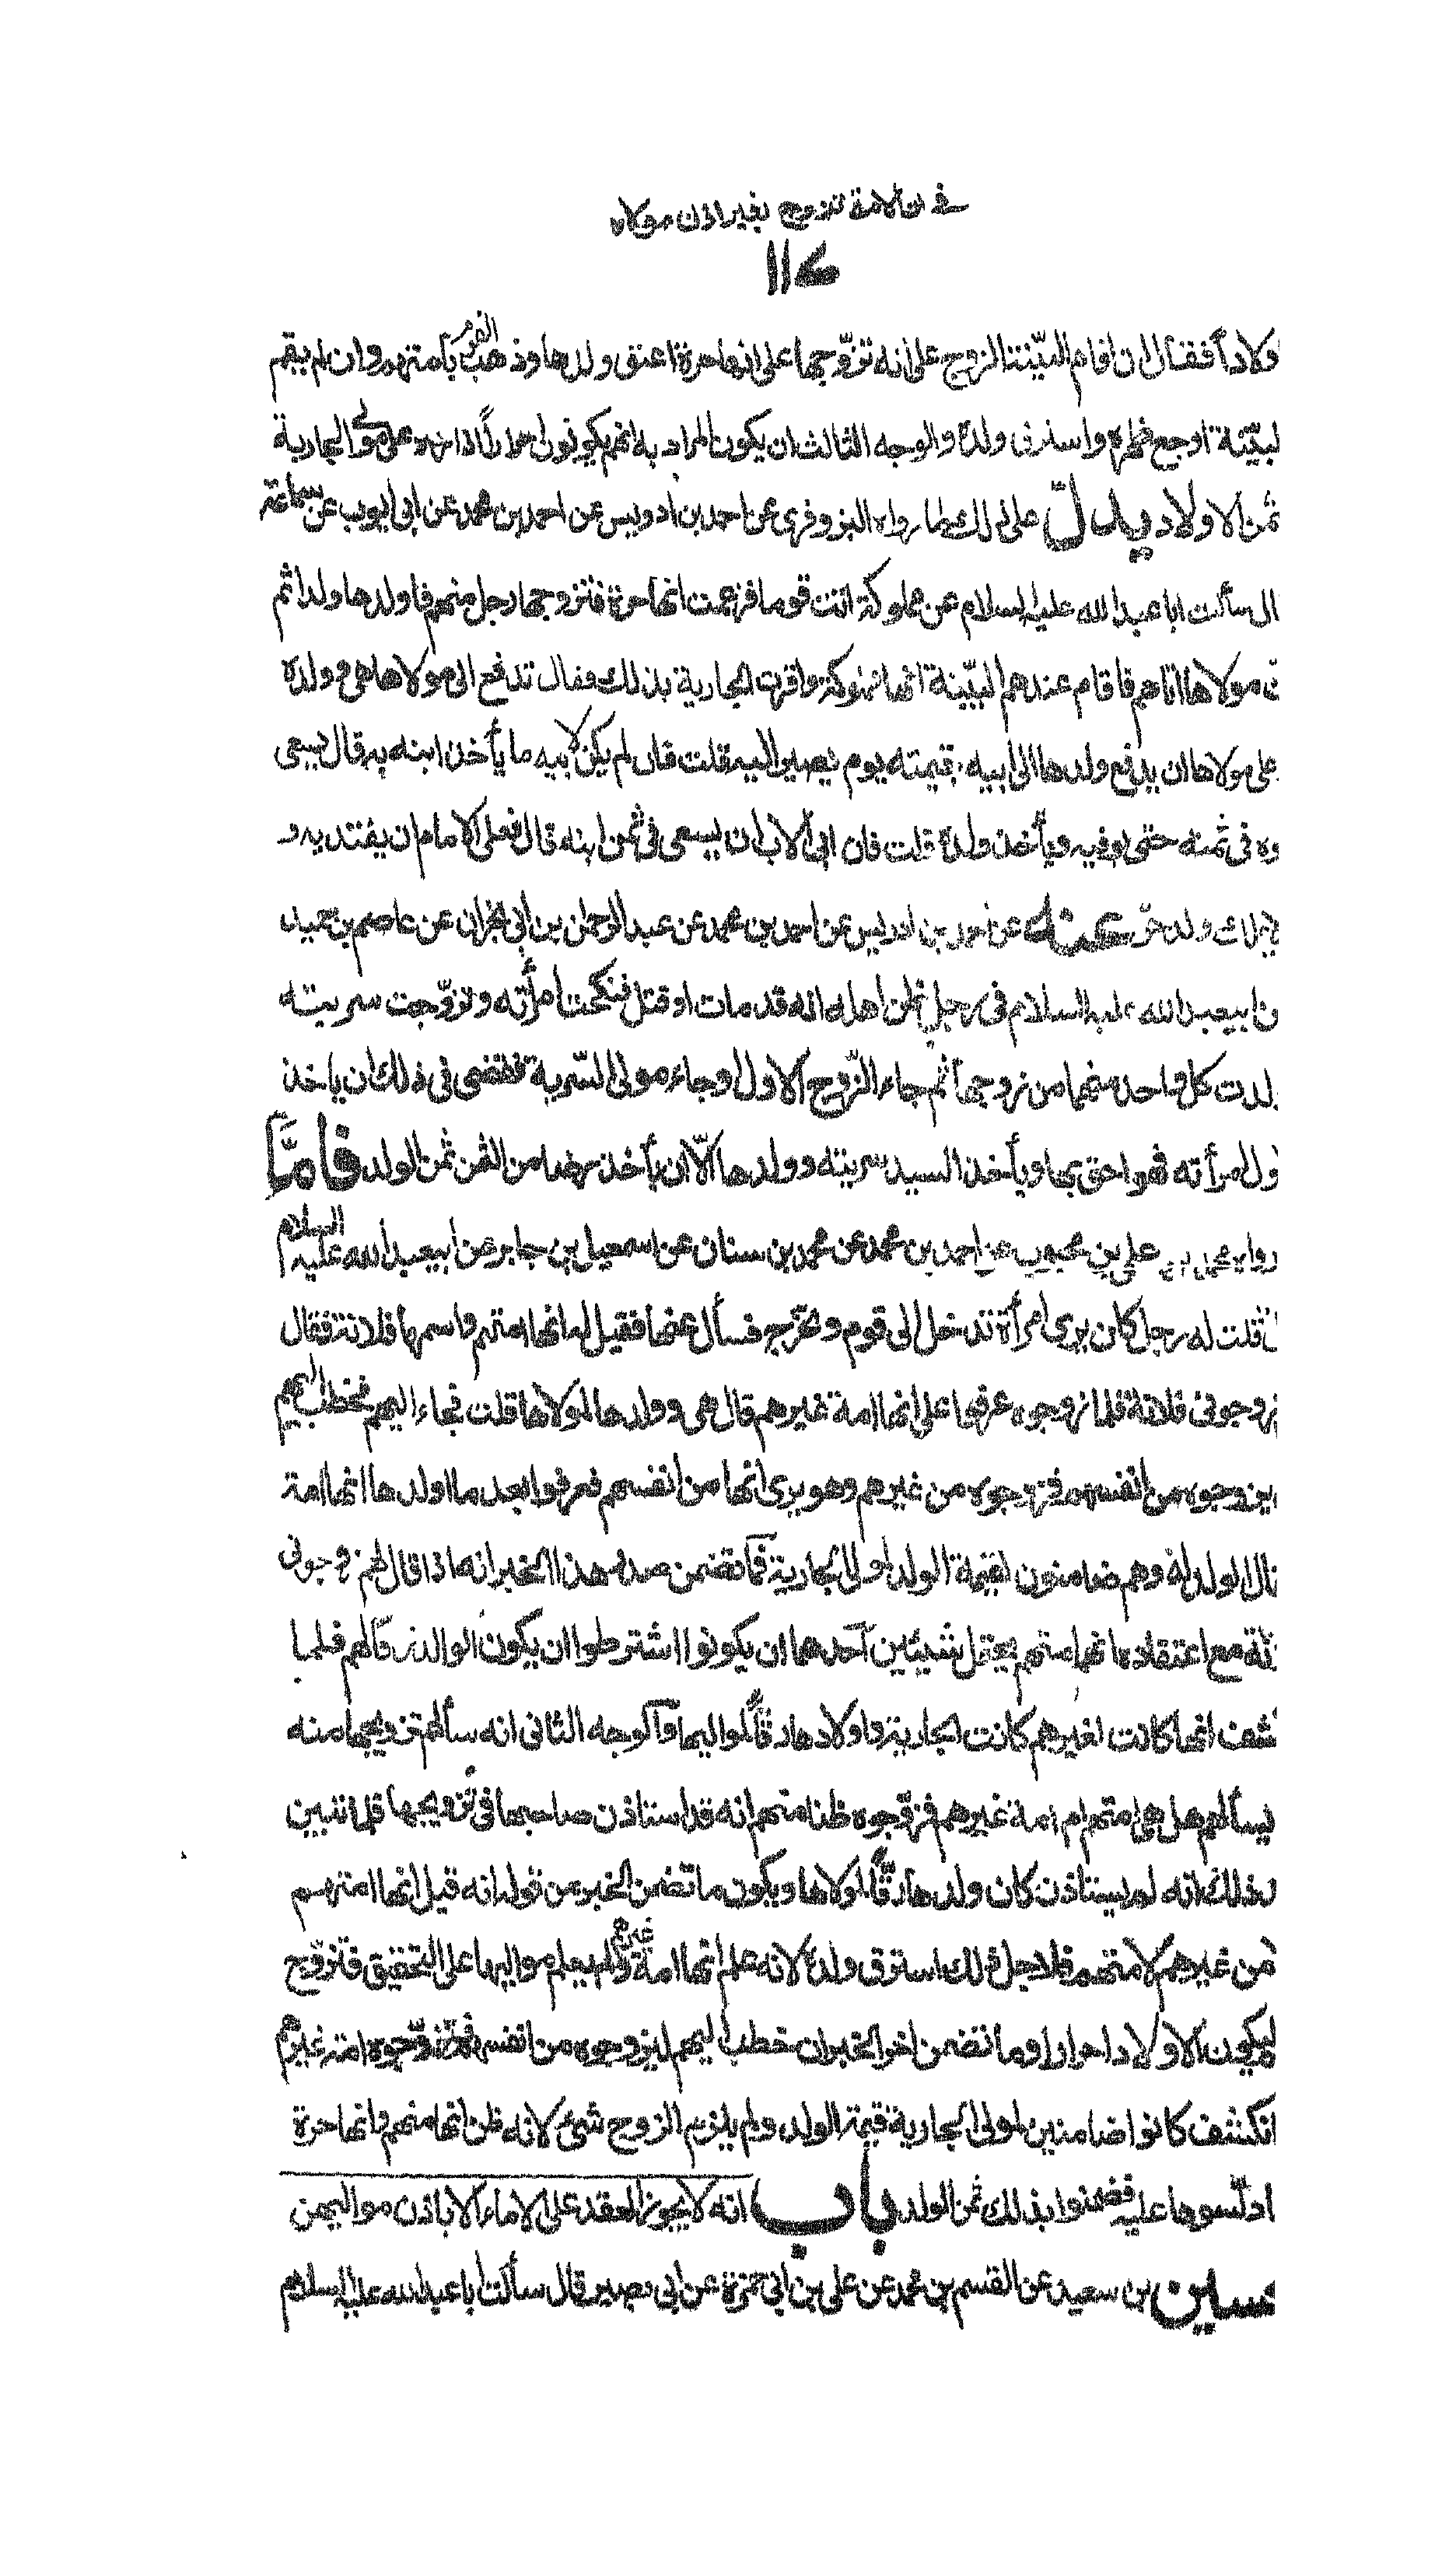 في ان الامة تتزوج بغير اذن مولاه
١١٥
اولاداً فقال ان اقام البيّنة الزوج على انه تزوّجها على انها حرة اعتق ولدها وذهب القوم بأمتهم وان لم يقم
لبيّنة اوجع ظهره واسترق ولده والوجه الثالث ان يكون المراد به انهم يكونون احرارًا اذا ردّ على مولى الجارية
ثمن الاولاد يدلّ على ذلك ما رواه البزوفري عن احمد بن ادريس عن احمد بن محمد عن ابي ايوب عن سماعة
ال سألت ابا عبد الله عليه السلام عن مملوكة اتت قوما فزعمت انها حرة فتزوجها رجل منهم فاولدها ولدا ثم
ن مولاها اتاهم فاقام عندهم البيّنة انها مملوكة واقرت الجارية بذلك فقال تدفع الى مولاها هي وولده
على مولاها ان يدفع ولدها الى ابيه بقيمته يوم يصير اليه قلت فان لم يكن لابيه ما يأخذ ابنه به قال يسعى
وه في ثمنه حتى يوفيه ويأخذ ولده قلت فان ابى الاب ان يسعى في ثمن ابنه قال فعلى الامام ان يفتديه و
يملك ولد حرّ عنه عن احمد بن ادريس عن احمد بن محمد عن عبد الرحمان بن ابي نجران عن عاصم بن حميد
ن ابيعبد الله عليه السلام في رجل ظن اهله انه قد مات او قتل فنكحت امرأته وتزوّجت سريته
لدت كل واحدة منهما من زوجها ثم جاء الزّوج الاول وجاء مولى السّرية فقضى في ذلك ان ياخذ
ول امرأته فهو احق بها ويأخذ السيد سريته وولدها الّا ان يأخذ رضا من الثمن ثمن الولد فامّا
رواه محمد بن علي بن محبوب عن احمد بن محمد عن محمد بن سنان عن اسمعيل بن جابر عن ابيعبد الله عليه السلام
ل قلت له رجل كان يرى امرأة تدخل الى قوم وتخرج فسأل عنها فقيل له انها امتهم واسمها فلانة فقال
زوجوني فلانة فلما زوجوه عرفها على انها امة غيرهم قال هي وولدها لمولاها قلت فجاء اليهم فخطب اليهم
ان يزوجوه من انفسهم فزوجوه من غيرهم وهو يرى انها من انفسهم فعرفوا بعد ما اولدها انها امة
قال الولد له وهم ضامنون لقيمة الولد لمولى الجارية فما تضمن صدر هذا الخبر انه اذا قال لهم زوجوني
فلانة مع اعتقاده انها امتهم يحتمل شيئين احدهما ان يكونوا اشترطوا ان يكون الولد رقا لهم فلما
نشف انها كانت لغيرهم كانت الجارية واولادها رقًا لمواليها والوجه الثاني انه سألهم تزويجها منه
يسألهم هل هي امتهم ام امة غيرهم فزوّجوه ظنا منهم انه قد استاذن صاحبها في تزويجها فلما تبين
بذلك انه لم يستاذن كان ولدها رقًّا لمولاها ويكون ما تضمن الخبر من قوله انه قيل انها امتهم
من غيرهم لا منهم فلاجل ذلك استرق ولده لانه علم انها امة غيرهم ولم يعلم مواليها على التحقيق فتزوّج
ليكون الاولاد احرارا وما تضمن اخر الخبر ان خطب اليهم ليزوجوه من انفسهم فزوّجوه امة غيرهم
انكشف كانوا ضامنين لمولى الجارية قيمة الولد ولم يلزم الزوج شئ لانه ظن انها منهم وانها حرة
ادلّسوها عليه فضمنوا بذلك ثمن الولد باب انه لا يجوز العقد على الاماء الا باذن مواليهن
حسين بن سعيد عن القسم بن محمد عن علي بن ابي حمزة عن ابي بصير قال سألت ابا عبد الله عليه السلام